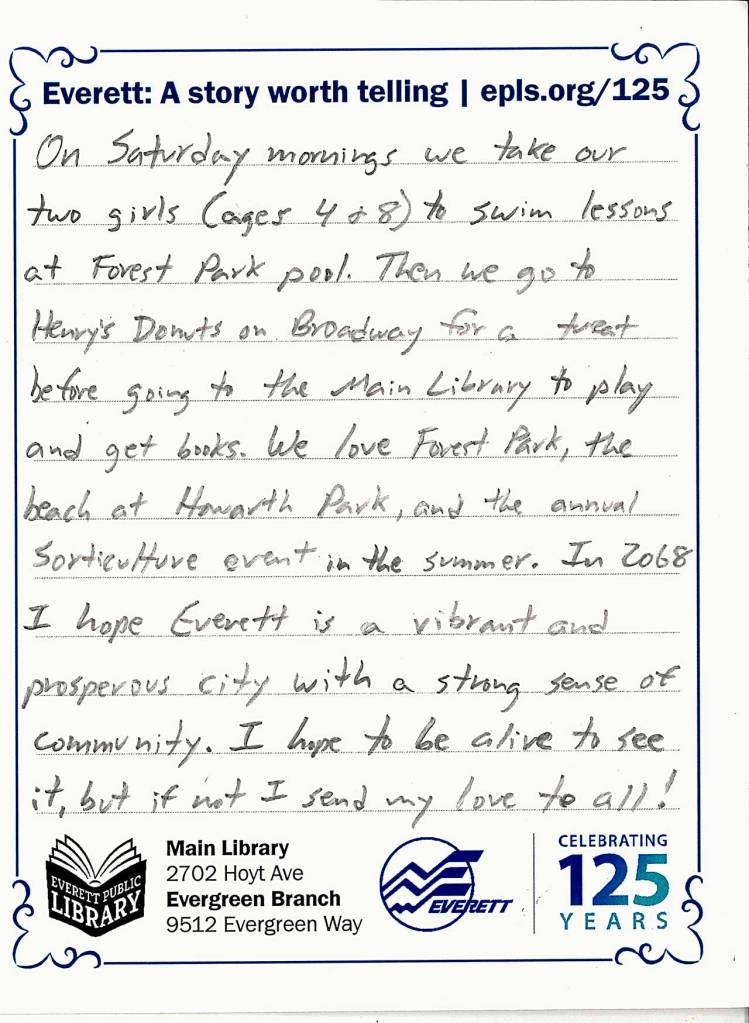 Everett: A story worth telling | epls.org/125
On Saturday mornings we take our
two girls (ages 4 & 8) to swim lessons
at Forest Park pool. Then we go to
Henry's Donuts on Broadway for a treat
before going to the Main Library to play
and get books. We love Forest Park, the
beach at Howarth Park, and the annual
Sorticulture event in the summer. In 2068
I hope Everett is a vibrant and
prosperous city with a strong sense of
community. I hope to be alive to see
it, but if not I send my love to all!
EVERETT PUBLIC
LIBRARY
Main Library
2702 Hoyt Ave
Evergreen Branch
9512 Evergreen Way
EVERETT
CELEBRATING
125
YEARS